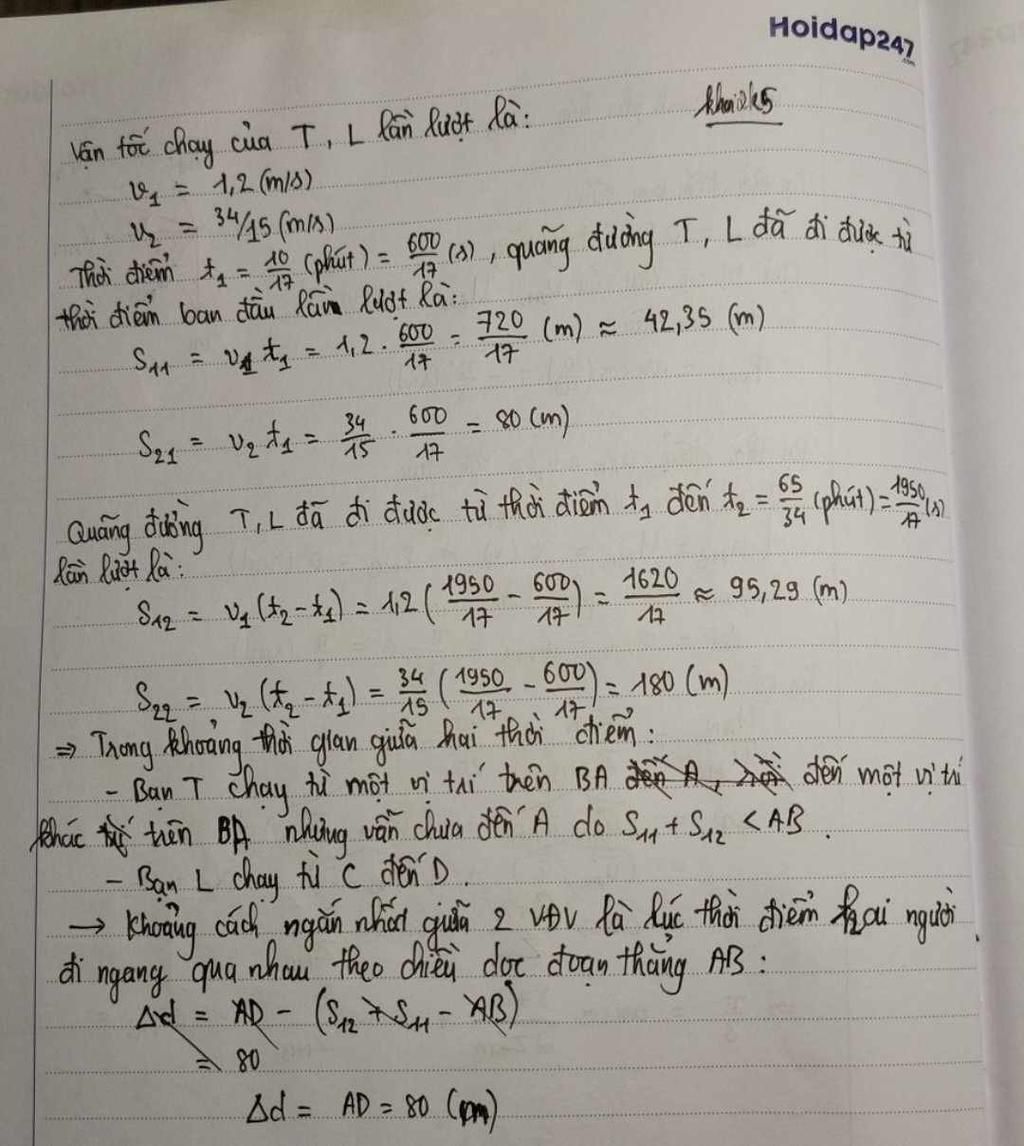 Hoidap247
.com
khai2k5
Vận tốc chạy của T, L lần lượt là:
v₁ = 1,2 (m/s)
v₂ = 34/15 (m/s)
Thời điểm t₁ = 10/17 (phút) = 600/17 (s), quãng đường T, L đã đi được từ
thời điểm ban đầu lần lượt là:
S₁₁ = v₁ t₁ = 1,2 . 600/17 = 720/17 (m) ≈ 42,35 (m)
S₂₁ = v₂ t₁ = 34/15 . 600/17 = 80 (m)
Quãng đường T, L đã đi được từ thời điểm t₁ đến t₂ = 65/34 (phút) = 1950/17 (s)
lần lượt là:
S₁₂ = v₁ (t₂ - t₁) = 1,2 (1950/17 - 600/17) = 1620/17 ≈ 95,29 (m)
S₂₂ = v₂ (t₂ - t₁) = 34/15 (1950/17 - 600/17) = 180 (m)
⇒ Trong khoảng thời gian giữa hai thời điểm:
- Bạn T chạy từ một vị trí trên BA đến A, rồi đến một vị trí
khác trên BA nhưng vẫn chưa đến A do S₁₁ + S₁₂ < AB.
- Bạn L chạy từ C đến D.
→ Khoảng cách ngắn nhất giữa 2 VĐV là lúc thời điểm hai người
đi ngang qua nhau theo chiều dọc đoạn thẳng AB:
Δd = AD - (S₁₂ + S₁₁ - AB)
= 80
Δd = AD = 80 (m)